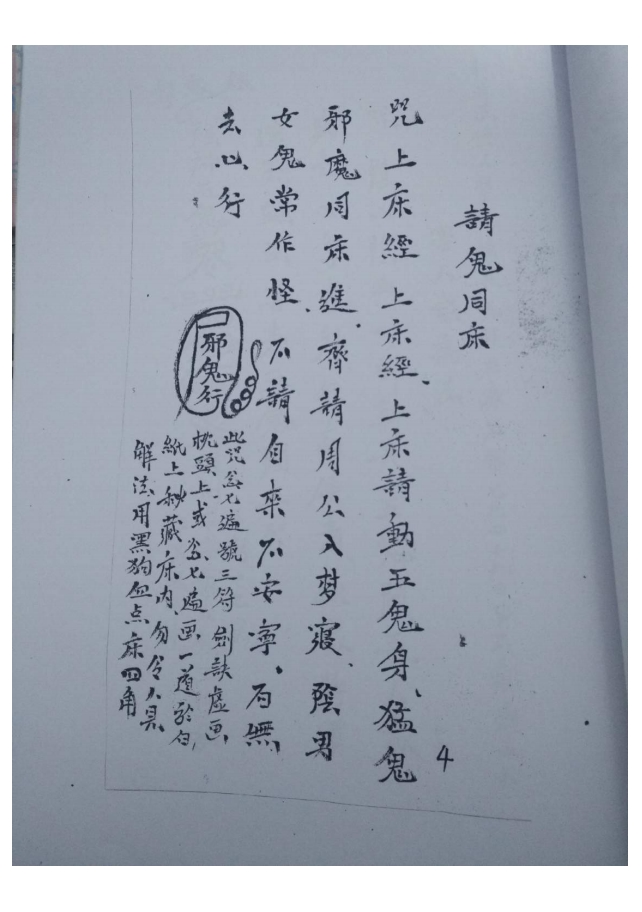 請鬼同床
咒上床經上床經、上床請動五鬼身、猛鬼
邪魔同床進、齊請周公入梦寢、陰男
女鬼常作怪、不請自來不安寧、有無
去心行
邪鬼行
此咒念七遍號三符 劍訣虛画
枕頭上或念七遍画一道於白
紙上秘藏床内、勿令人見
解法用黑狗血点床四角
4